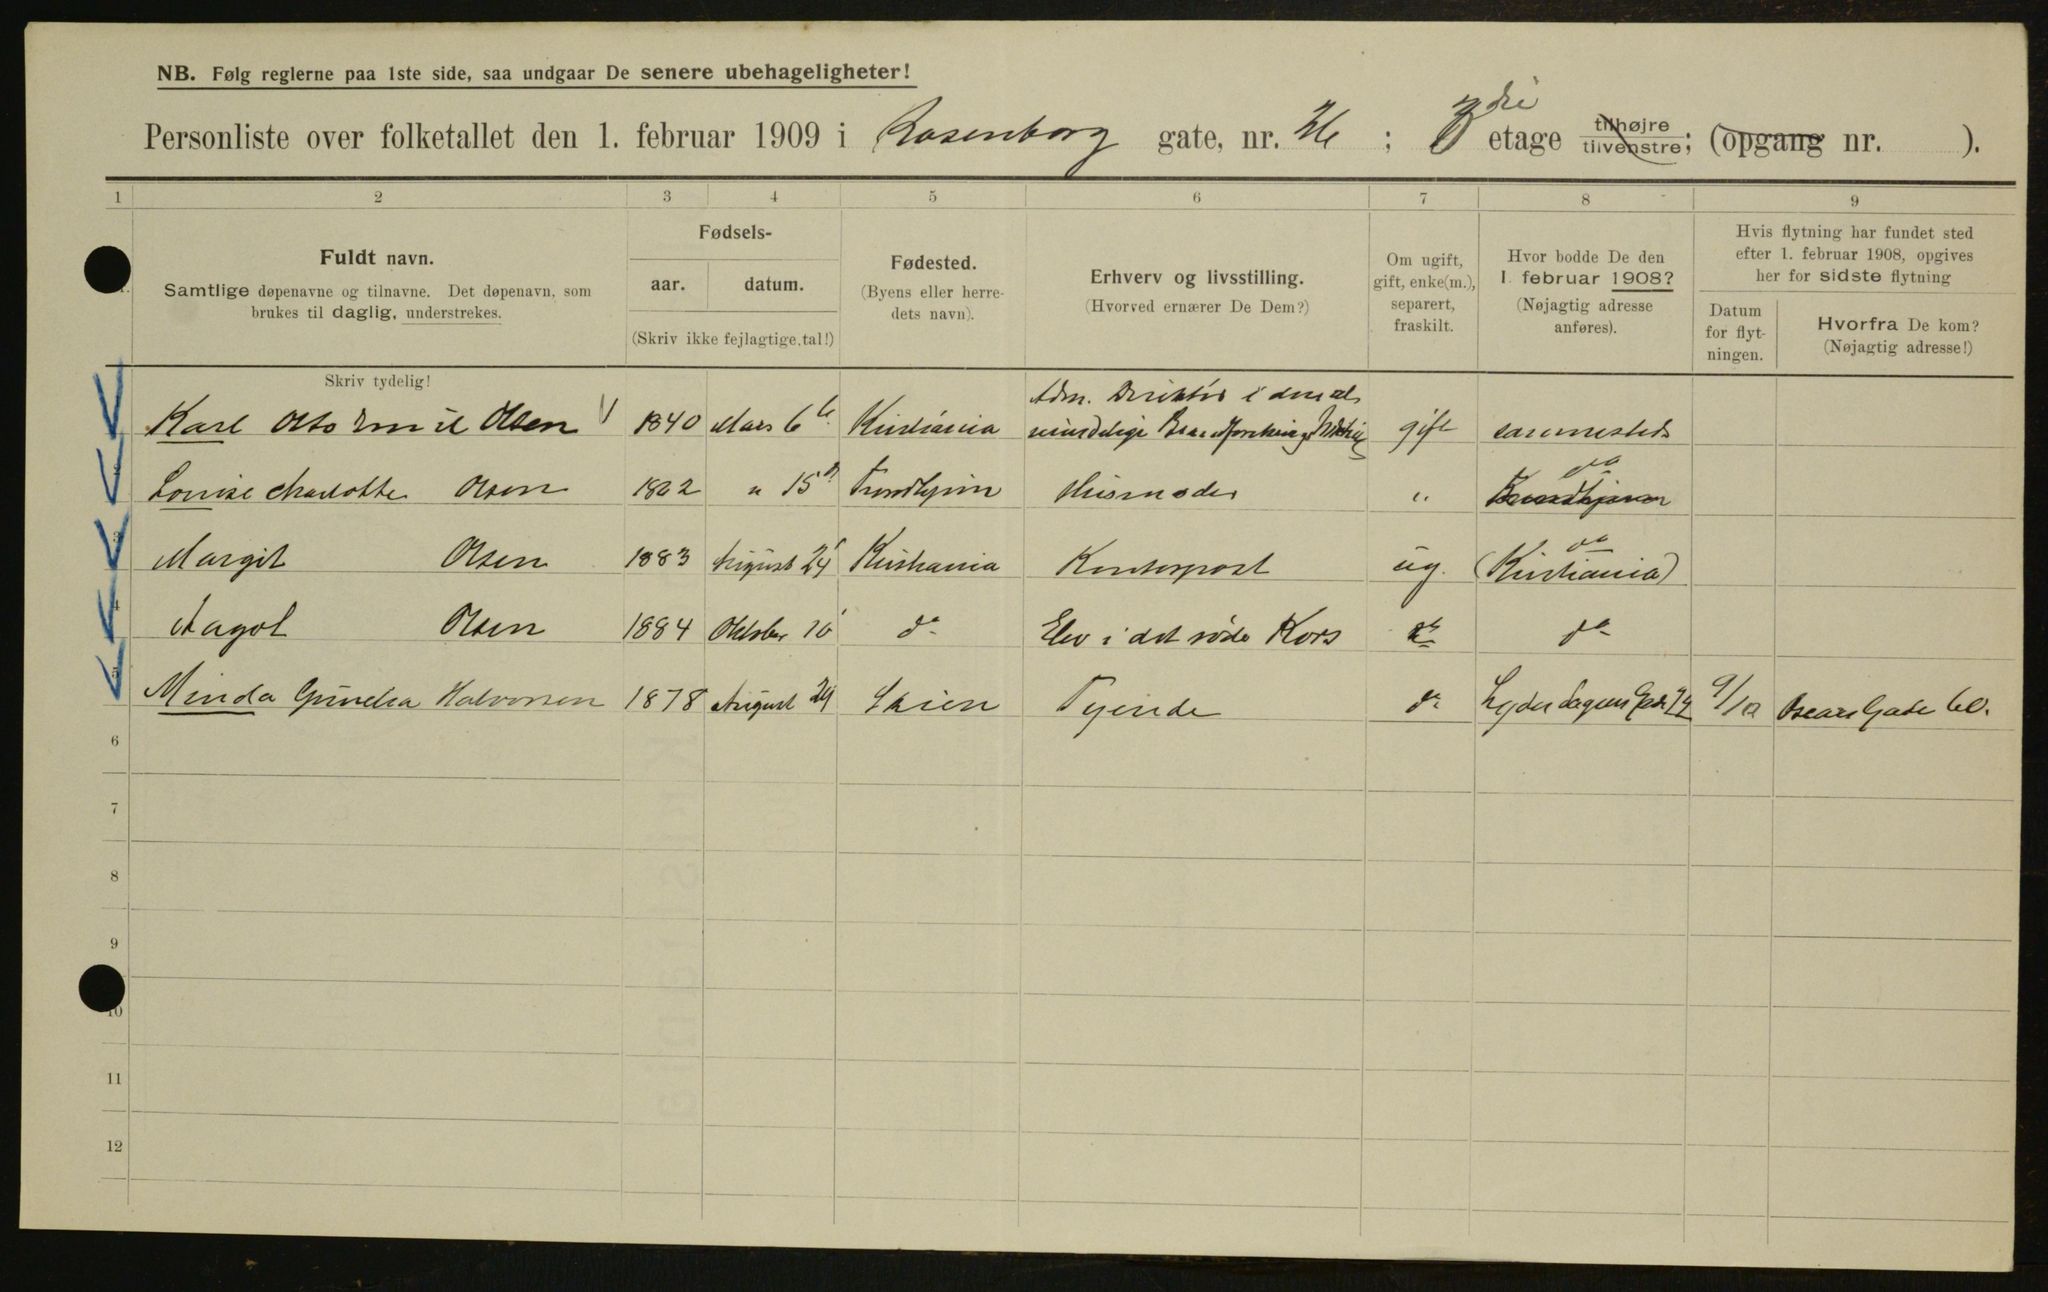 NB. Følg reglerne paa 1ste side, saa undgaar De senere ubehageligheter!
Personliste over folketallet den 1. februar 1909 i Rosenborg gate, nr. 26 ; 3die etage tilhøjre tilvenstre; (opgang nr. ).
1 2 3 4 5 6 7 8 9
Fuldt navn.
Samtlige døpenavne og tilnavne. Det døpenavn, som
brukes til daglig, understrekes.
Fødsels-
aar. datum.
(Skriv ikke fejlagtige tal!)
Fødested.
(Byens eller herre-
dets navn).
Erhverv og livsstilling.
(Hvorved ernærer De Dem?)
Om ugift,
gift, enke(m.),
separert,
fraskilt.
Hvor bodde De den
1. februar 1908?
(Nøjagtig adresse
anføres).
Hvis flytning har fundet sted
efter 1. februar 1908, opgives
her for sidste flytning
Datum
for flyt-
ningen.
Hvorfra De kom?
(Nøjagtig adresse!)
Skriv tydelig!
Adm. Direktør i den al
Karl Otto Emil Olsen 1840 Mars 6te Kristiania mindelige gift sammesteds
2 Louise Charlotte Olsen 1862 " 15d Trondhjem Husmoder " do Trondhjem
3 Margit Olsen 1883 August 24 Kristiania Kontorpost ug. do (Kristiania)
4 Aagot Olsen 1884 Oktober 16 do Elev i det røde Kors do do
5 Minda Halvorsen 1878 August 29 Skien Tjende do Lyder Sagens Gade 9/10 Oscars Gade 60.
6
7
8
9
10
11
12